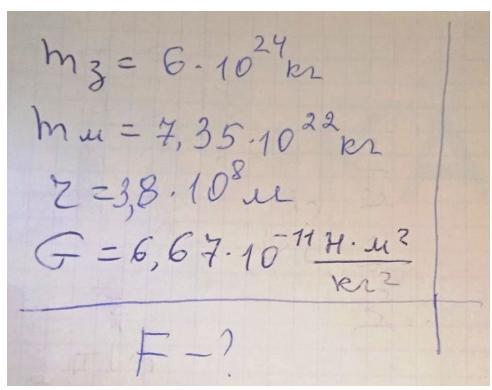 mз = 6·10²⁴кг
mм = 7,35·10²²кг
r = 3,8·10⁸м
G = 6,67·10⁻¹¹ Н·м²/кг²
F - ?